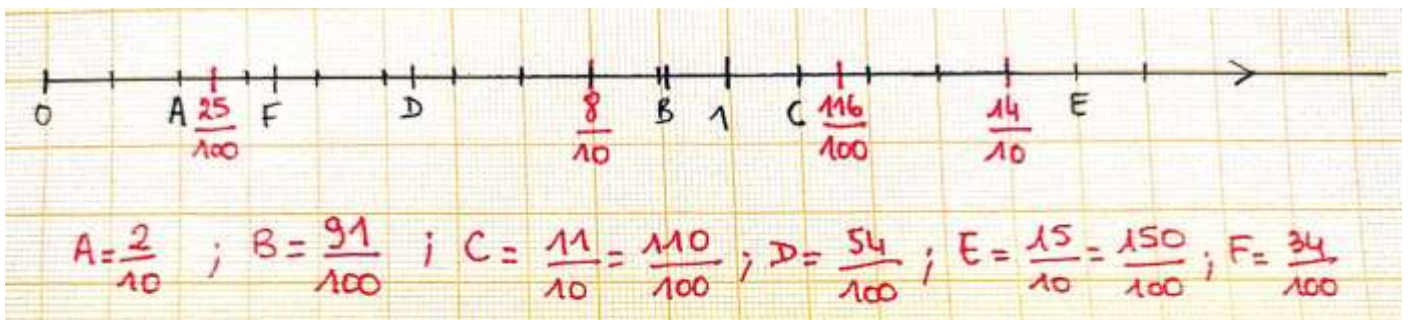 0 A 25/100 F D 8/10 B 1 C 116/100 14/10 E
A = 2/10 ; B = 91/100 ; C = 11/10 = 110/100 ; D = 54/100 ; E = 15/10 = 150/100 ; F = 34/100